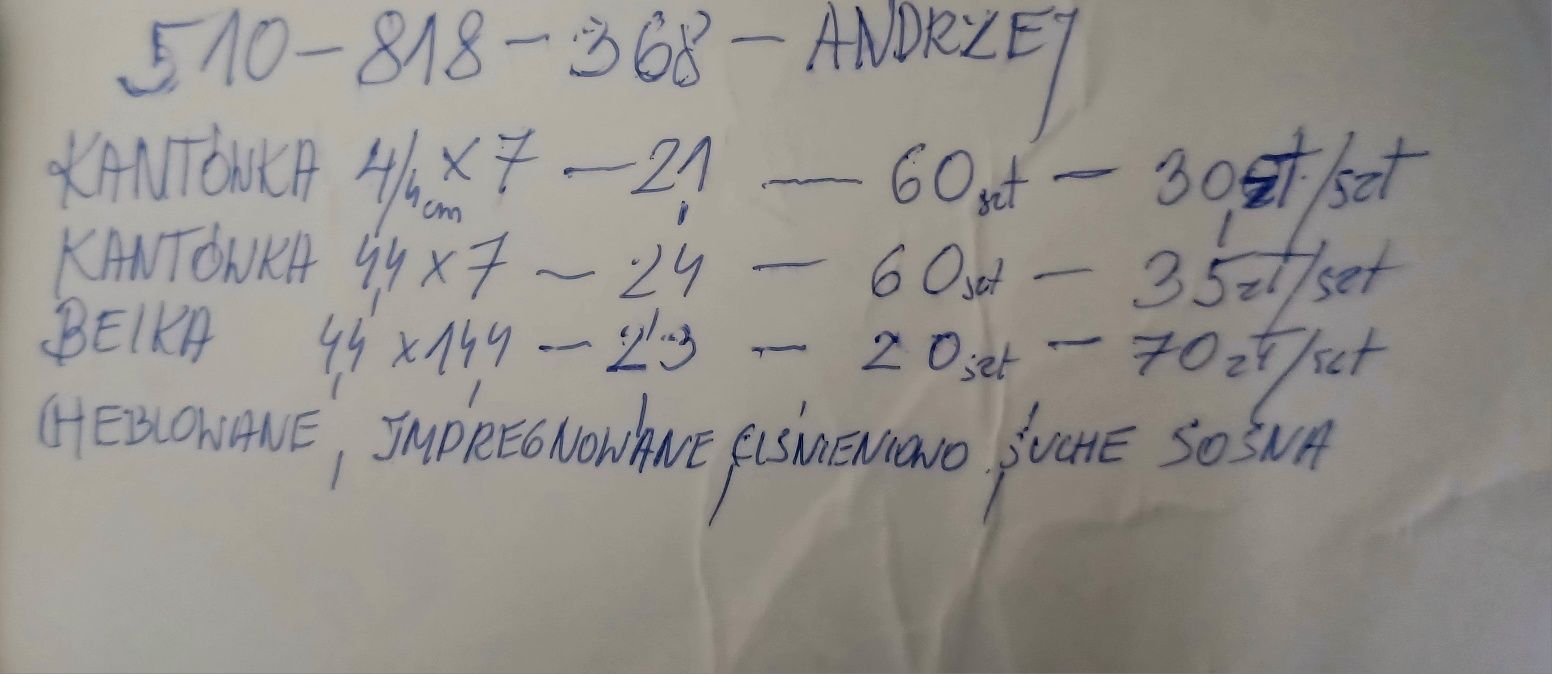 510-818-368 - ANDRZEJ
KANTÓWKA 4,4cm x 7 - 2,1 - 60szt - 30zł/szt
KANTÓWKA 4,4 x 7 - 24 - 60szt - 35zł/szt
BELKA 4,4 x 14,4 - 2,3 - 20szt - 70zł/szt
(HEBLOWANE, IMPREGNOWANE CIŚNIENIOWO, SUCHE SOSNA